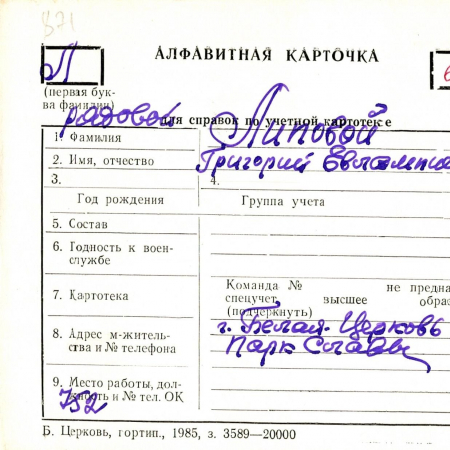 871
АЛФАВИТНАЯ КАРТОЧКА
Л
(первая бук-
ва фамилии)
рядовой для справок по учетной картотеке
1. Фамилия Липовой
2. Имя, отчество Григорий Евлампие
3. 4.
Год рождения Группа учета
5. Состав
6. Годность к воен-
службе
Команда № не предна
7. Картотека спецучет, высшее образ
(подчеркнуть)
8. Адрес м-житель- г. Белая-Церковь
ства и № телефона Парк Славы
9. Место работы, дол-
жность и № тел. ОК
752
Б. Церковь, гортип., 1985, з. 3589—20000